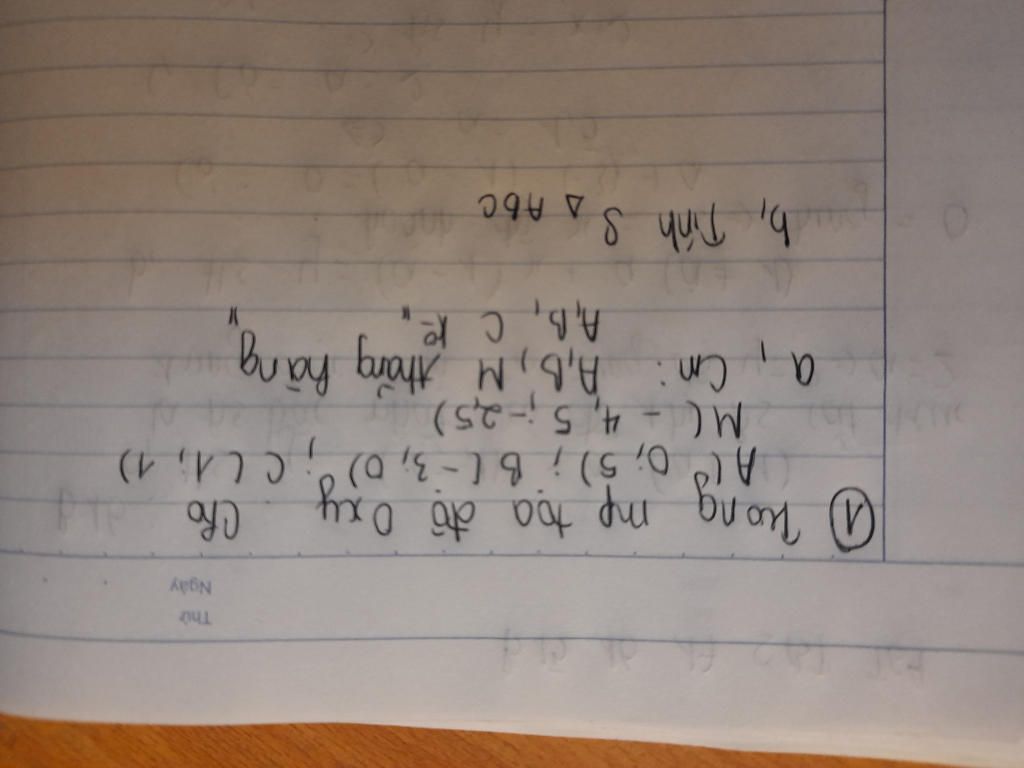 Thứ
Ngày
① Trong mp tọa độ Oxy. Cho
A(0; 5); B(-3; 0); C(1; 1)
M(-4,5; -2,5)
a, Cm: A,B, M thẳng hàng
A,B, C k° " "
b, Tính S △ ABC